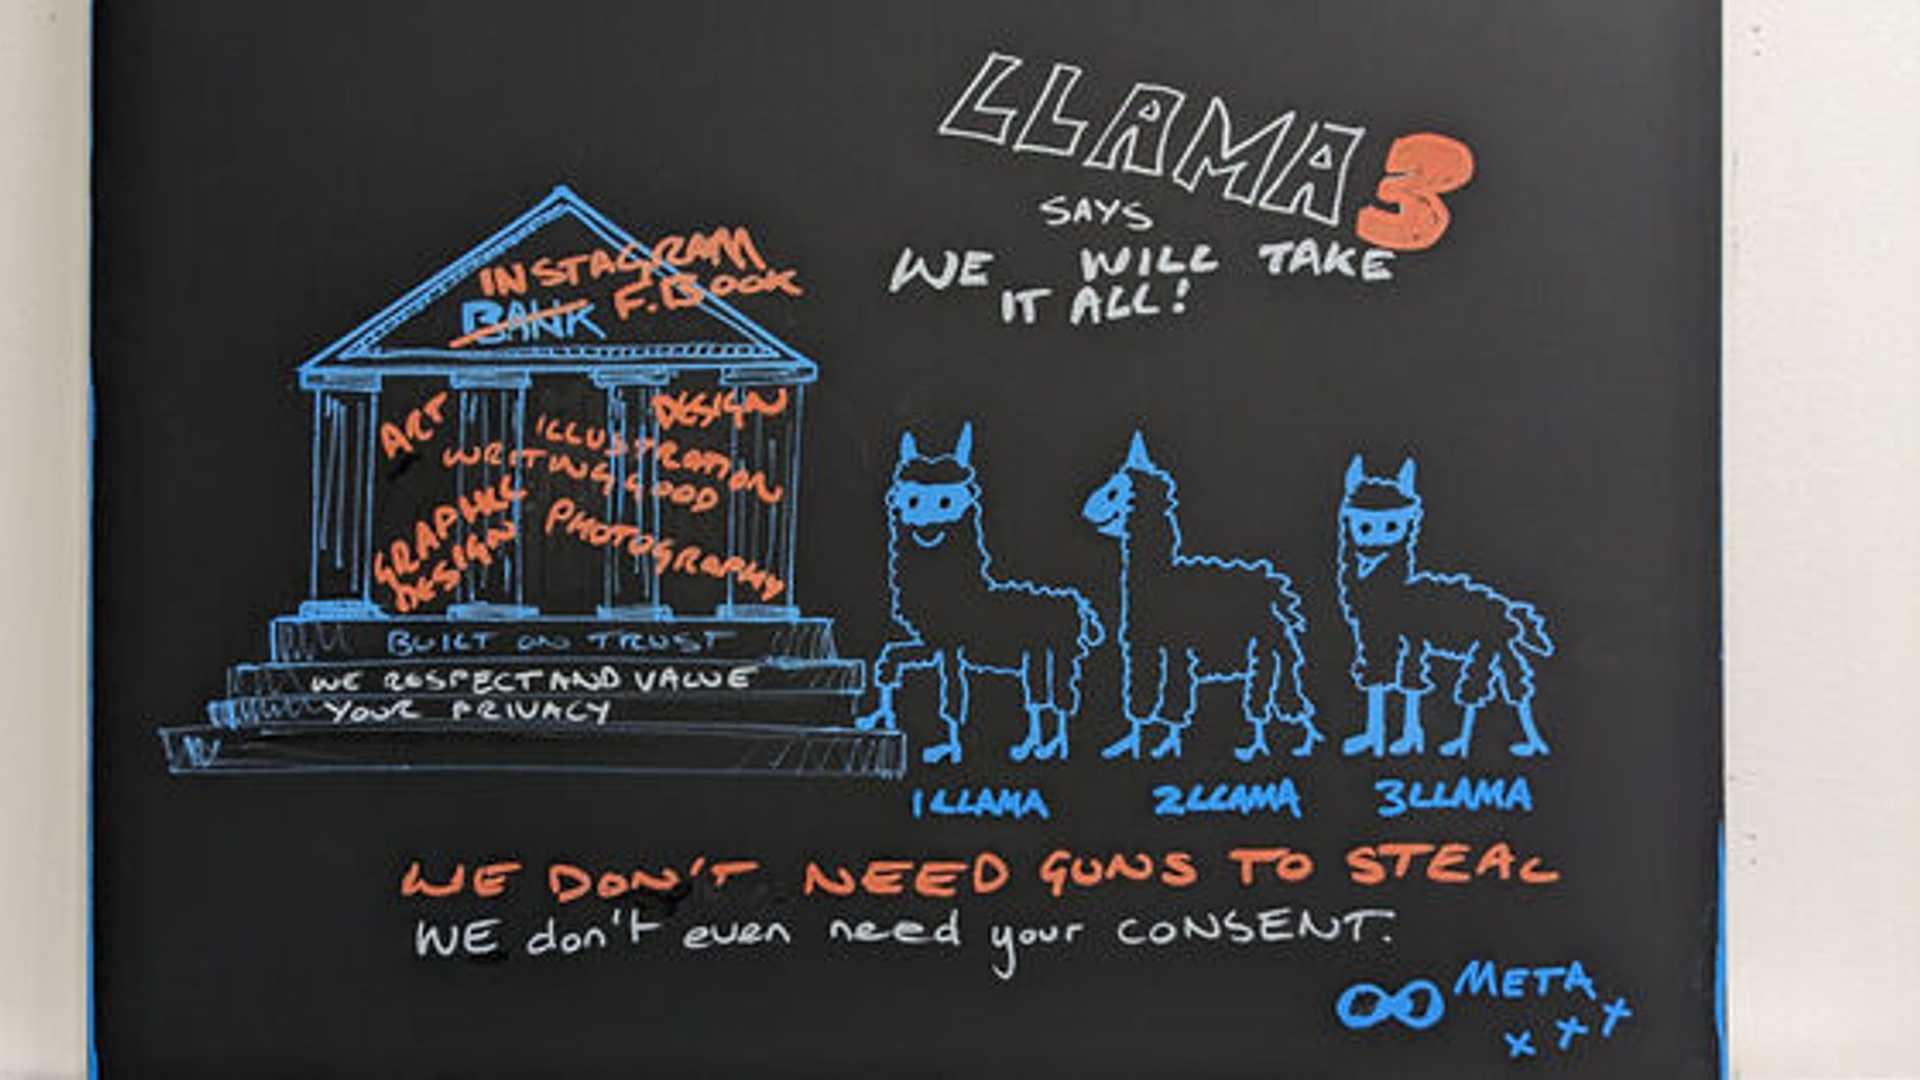 LLAMA 3
SAYS
WE WILL TAKE
IT ALL!
INSTAGRAM
BANK F.BOOK
ART
DESIGN
ILLUSTRATION
WRITING GOOD
GRAPHIC
DESIGN
PHOTOGRAPHY
BUILT ON TRUST
WE RESPECT AND VALUE
YOUR PRIVACY
1LLAMA 2LLAMA 3LLAMA
WE DON'T NEED GUNS TO STEAL
WE don't even need your CONSENT.
META
x x x